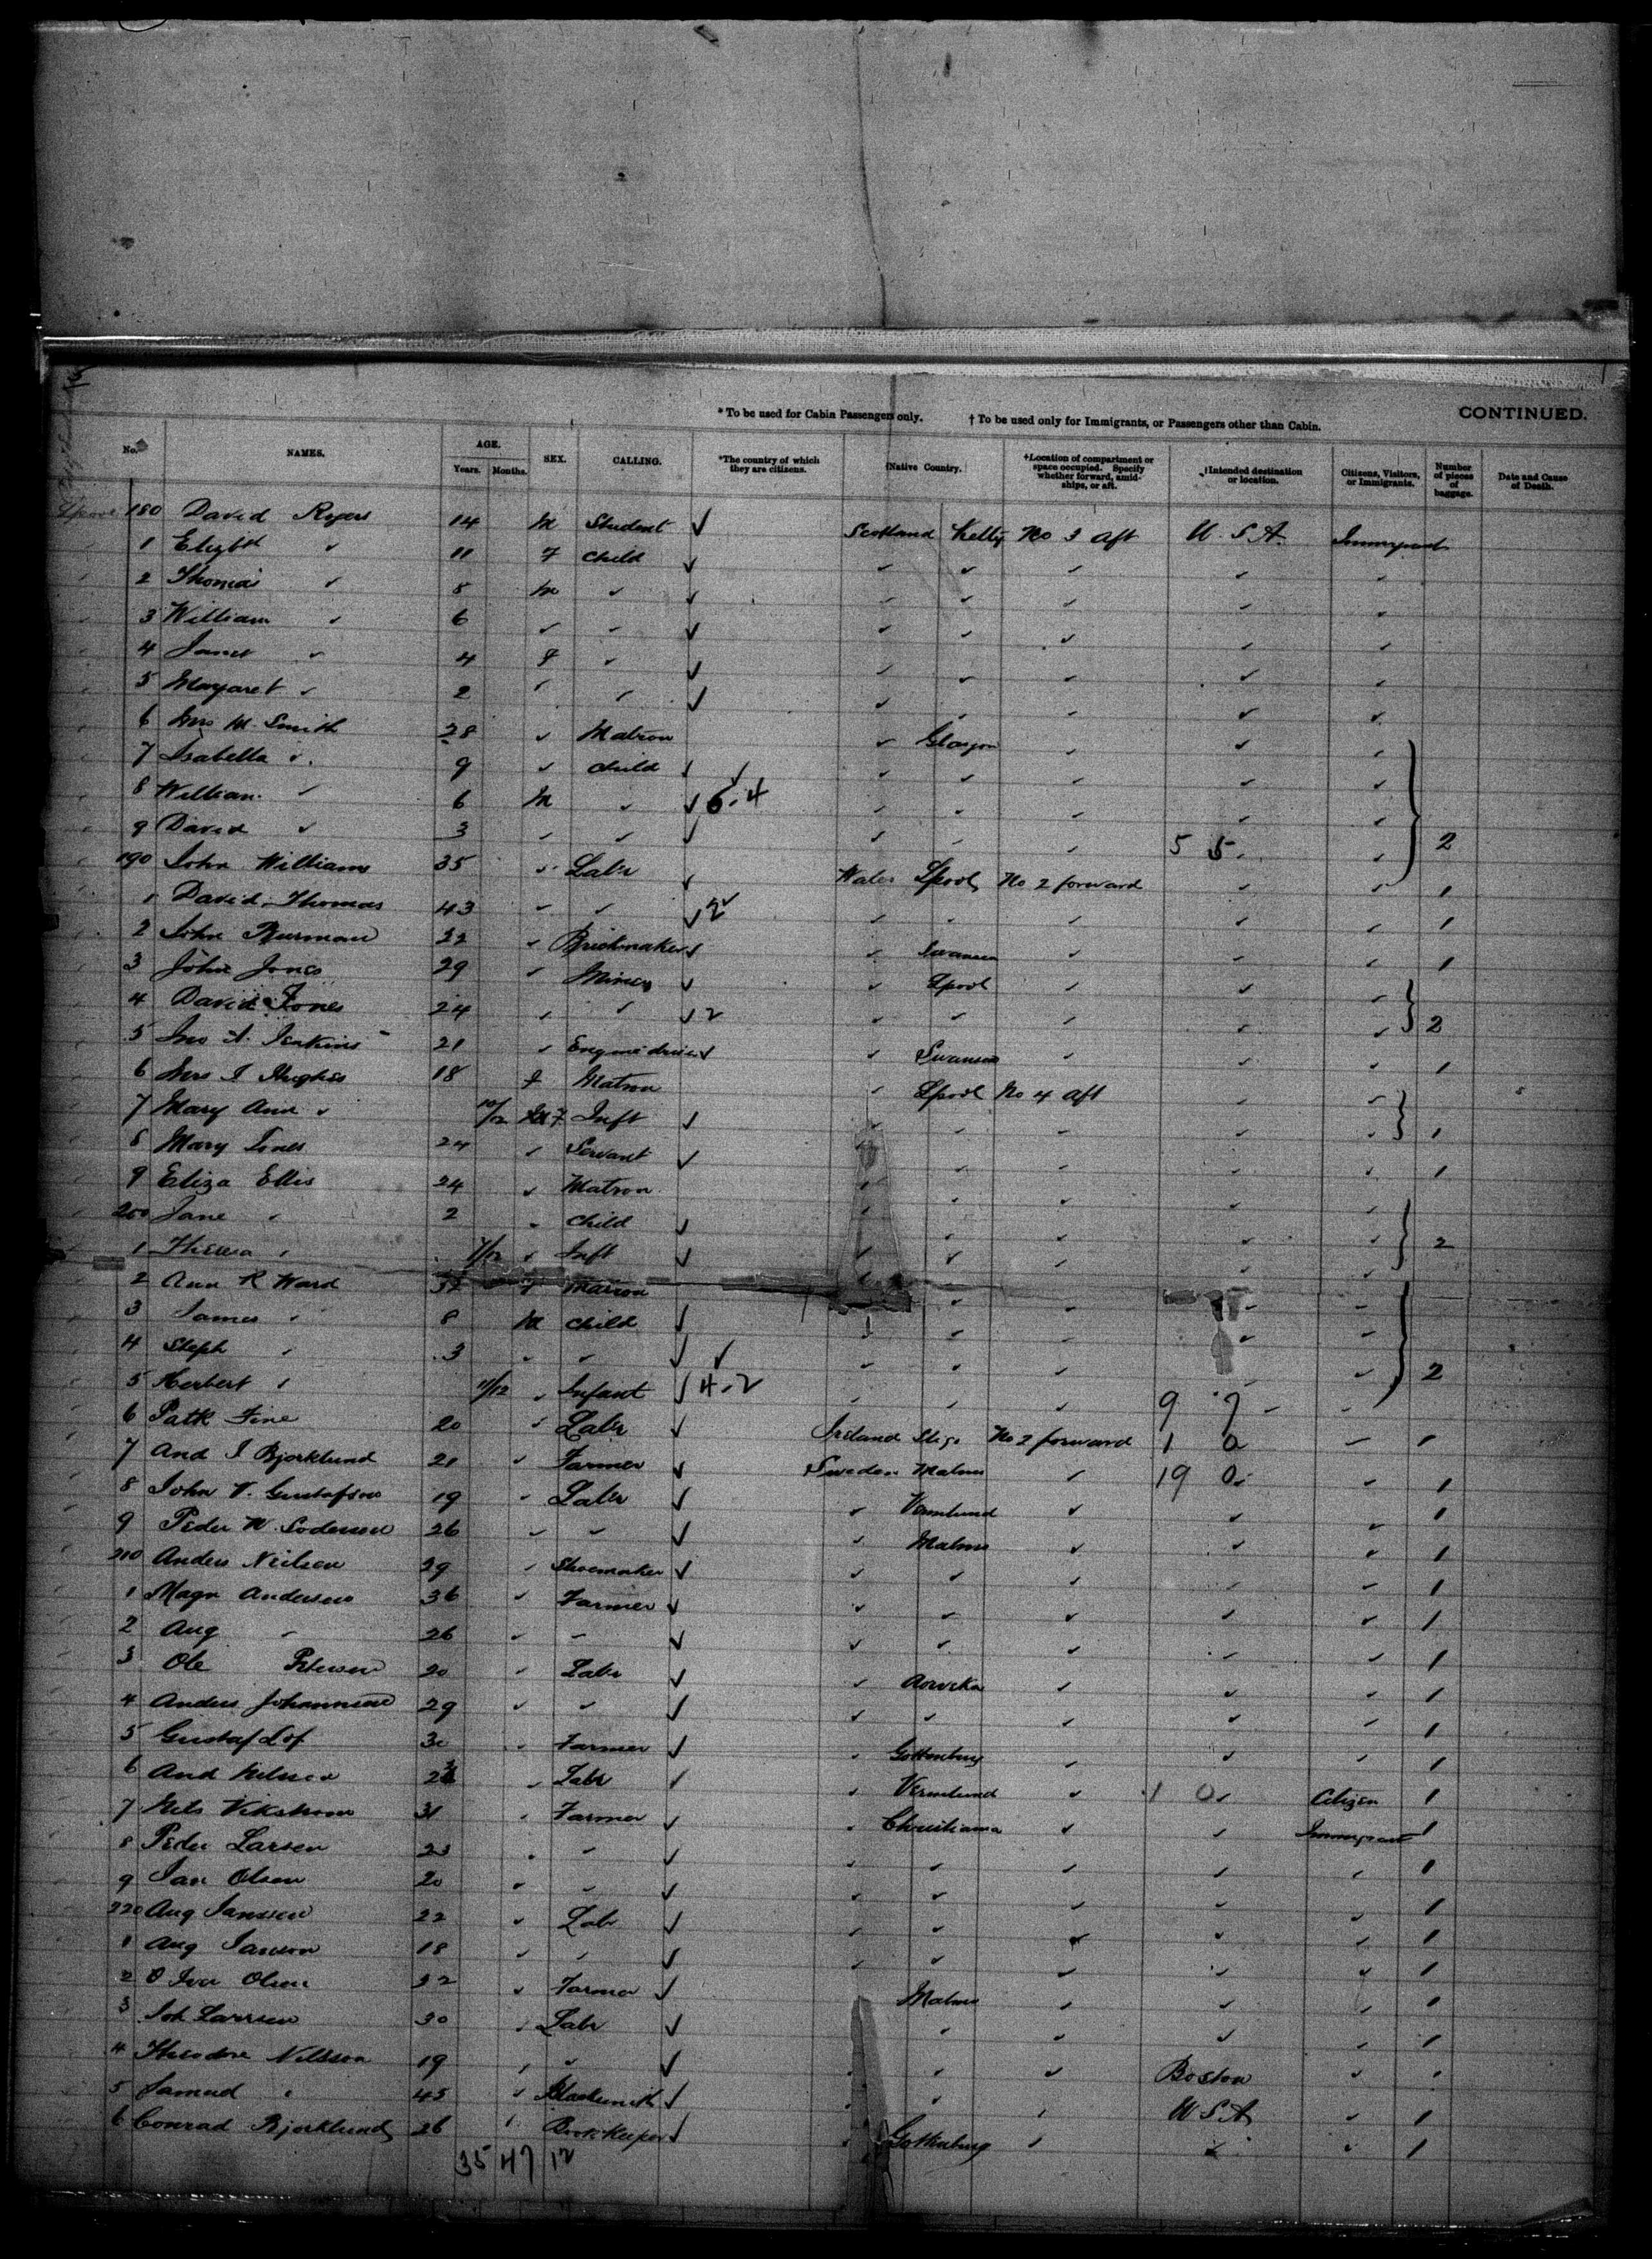 * To be used for Cabin Passengers only. † To be used only for Immigrants, or Passengers other than Cabin. CONTINUED.
No. NAMES. AGE. Years. Months. SEX. CALLING. *The country of which they are citizens. †Native Country. †Location of compartment or space occupied. Specify whether forward, amidships, or aft. †Intended destination or location. Citizens, Visitors, or Immigrants. Number of pieces of baggage. Date and Cause of Death.
180 David 14 M Student ✓ Scotland Kelty No 3 Aft U.S.A. Immigrant
1 Elizbth ✓ 11 F Child ✓
2 Thomas ✓ 8 M ✓ ✓
3 William ✓ 6 ✓ ✓ ✓
4 Janet ✓ 4 F ✓ ✓
5 Margaret ✓ 2 ✓ ✓ ✓
6 Mrs M. Smith 28 ✓ Matron ✓ Glasgow
7 Isabella ✓ 9 ✓ Child ✓
8 William ✓ 6 M ✓ ✓ 6.4
9 David ✓ 3 ✓ ✓ ✓ 5 5 2
190 John Williams 35 ✓ Labr ✓ Wales Lpool No 2 forward 1
1 David Thomas 43 ✓ ✓ ✓ 2 1
2 John 22 ✓ Brickmaker ✓ Swansea 1
3 John Jones 29 ✓ Miner ✓ Lpool
4 David Jones 24 ✓ ✓ ✓ 2 2
5 Jno A. Jenkins 21 ✓ Engine driver ✓ Swansea 1
6 Mrs J Hughes 18 F Matron Lpool No 4 Aft
7 Mary Ann ✓ 10/12 F Inft ✓ 1
8 Mary Jones 24 ✓ Servant ✓ 1
9 Eliza Ellis 24 ✓ Matron
200 Jane ✓ 2 ✓ Child ✓ 2
1 ✓ 7/12 ✓ Inft ✓
2 Ann R Ward Matron
3 James ✓ 8 M Child ✓
4 Steph ✓ 3 ✓ ✓ ✓ 2
5 Herbert ✓ 11/12 ✓ Infant ✓ 4.2 9 7
6 Patk 20 ✓ Labr ✓ Ireland Sligo No 2 forward 1 0 1
7 And J Bjorklund 21 ✓ Farmer ✓ Sweden Malmo ✓ 19 0 1
8 John V. Gustafson 19 ✓ Labr ✓ Vermlund 1
9 Peder W. 26 ✓ ✓ ✓ Malmo 1
210 Anders Neilsen 29 ✓ Shoemaker ✓ 1
1 Magn Andersen 36 ✓ Farmer ✓ 1
2 Aug ✓ 26 ✓ ✓ ✓ 1
3 Ole Petersen 20 ✓ Labr ✓ 1
4 Anders 29 ✓ ✓ ✓ 1
5 Gustaf Lof 30 ✓ Farmer ✓ Gottenburg 1
6 And ✓ Labr ✓ Vermlund 1 0 Citizen 1
7 Nils Vikstrom 31 ✓ Farmer ✓ Christiania Immigrant 1
8 Peder Larsen 23 ✓ ✓ ✓ 1
9 Jan Olsen 20 ✓ ✓ ✓ 1
220 Aug Janssen 22 ✓ Labr ✓ 1
1 Aug Janson 18 ✓ ✓ ✓ 1
2 O Iver Olsen 22 ✓ Farmer ✓ Malmo 1
3 Joh Larrsen 30 ✓ Labr ✓ 1
4 Theodore Nilsson 19 ✓ ✓ ✓ Boston
5 Samuel ✓ 45 ✓ Blacksmith ✓ U S A 1
6 Conrad Bjorklund 26 ✓ Bookkeeper ✓ Gottenburg 1
35 47 12